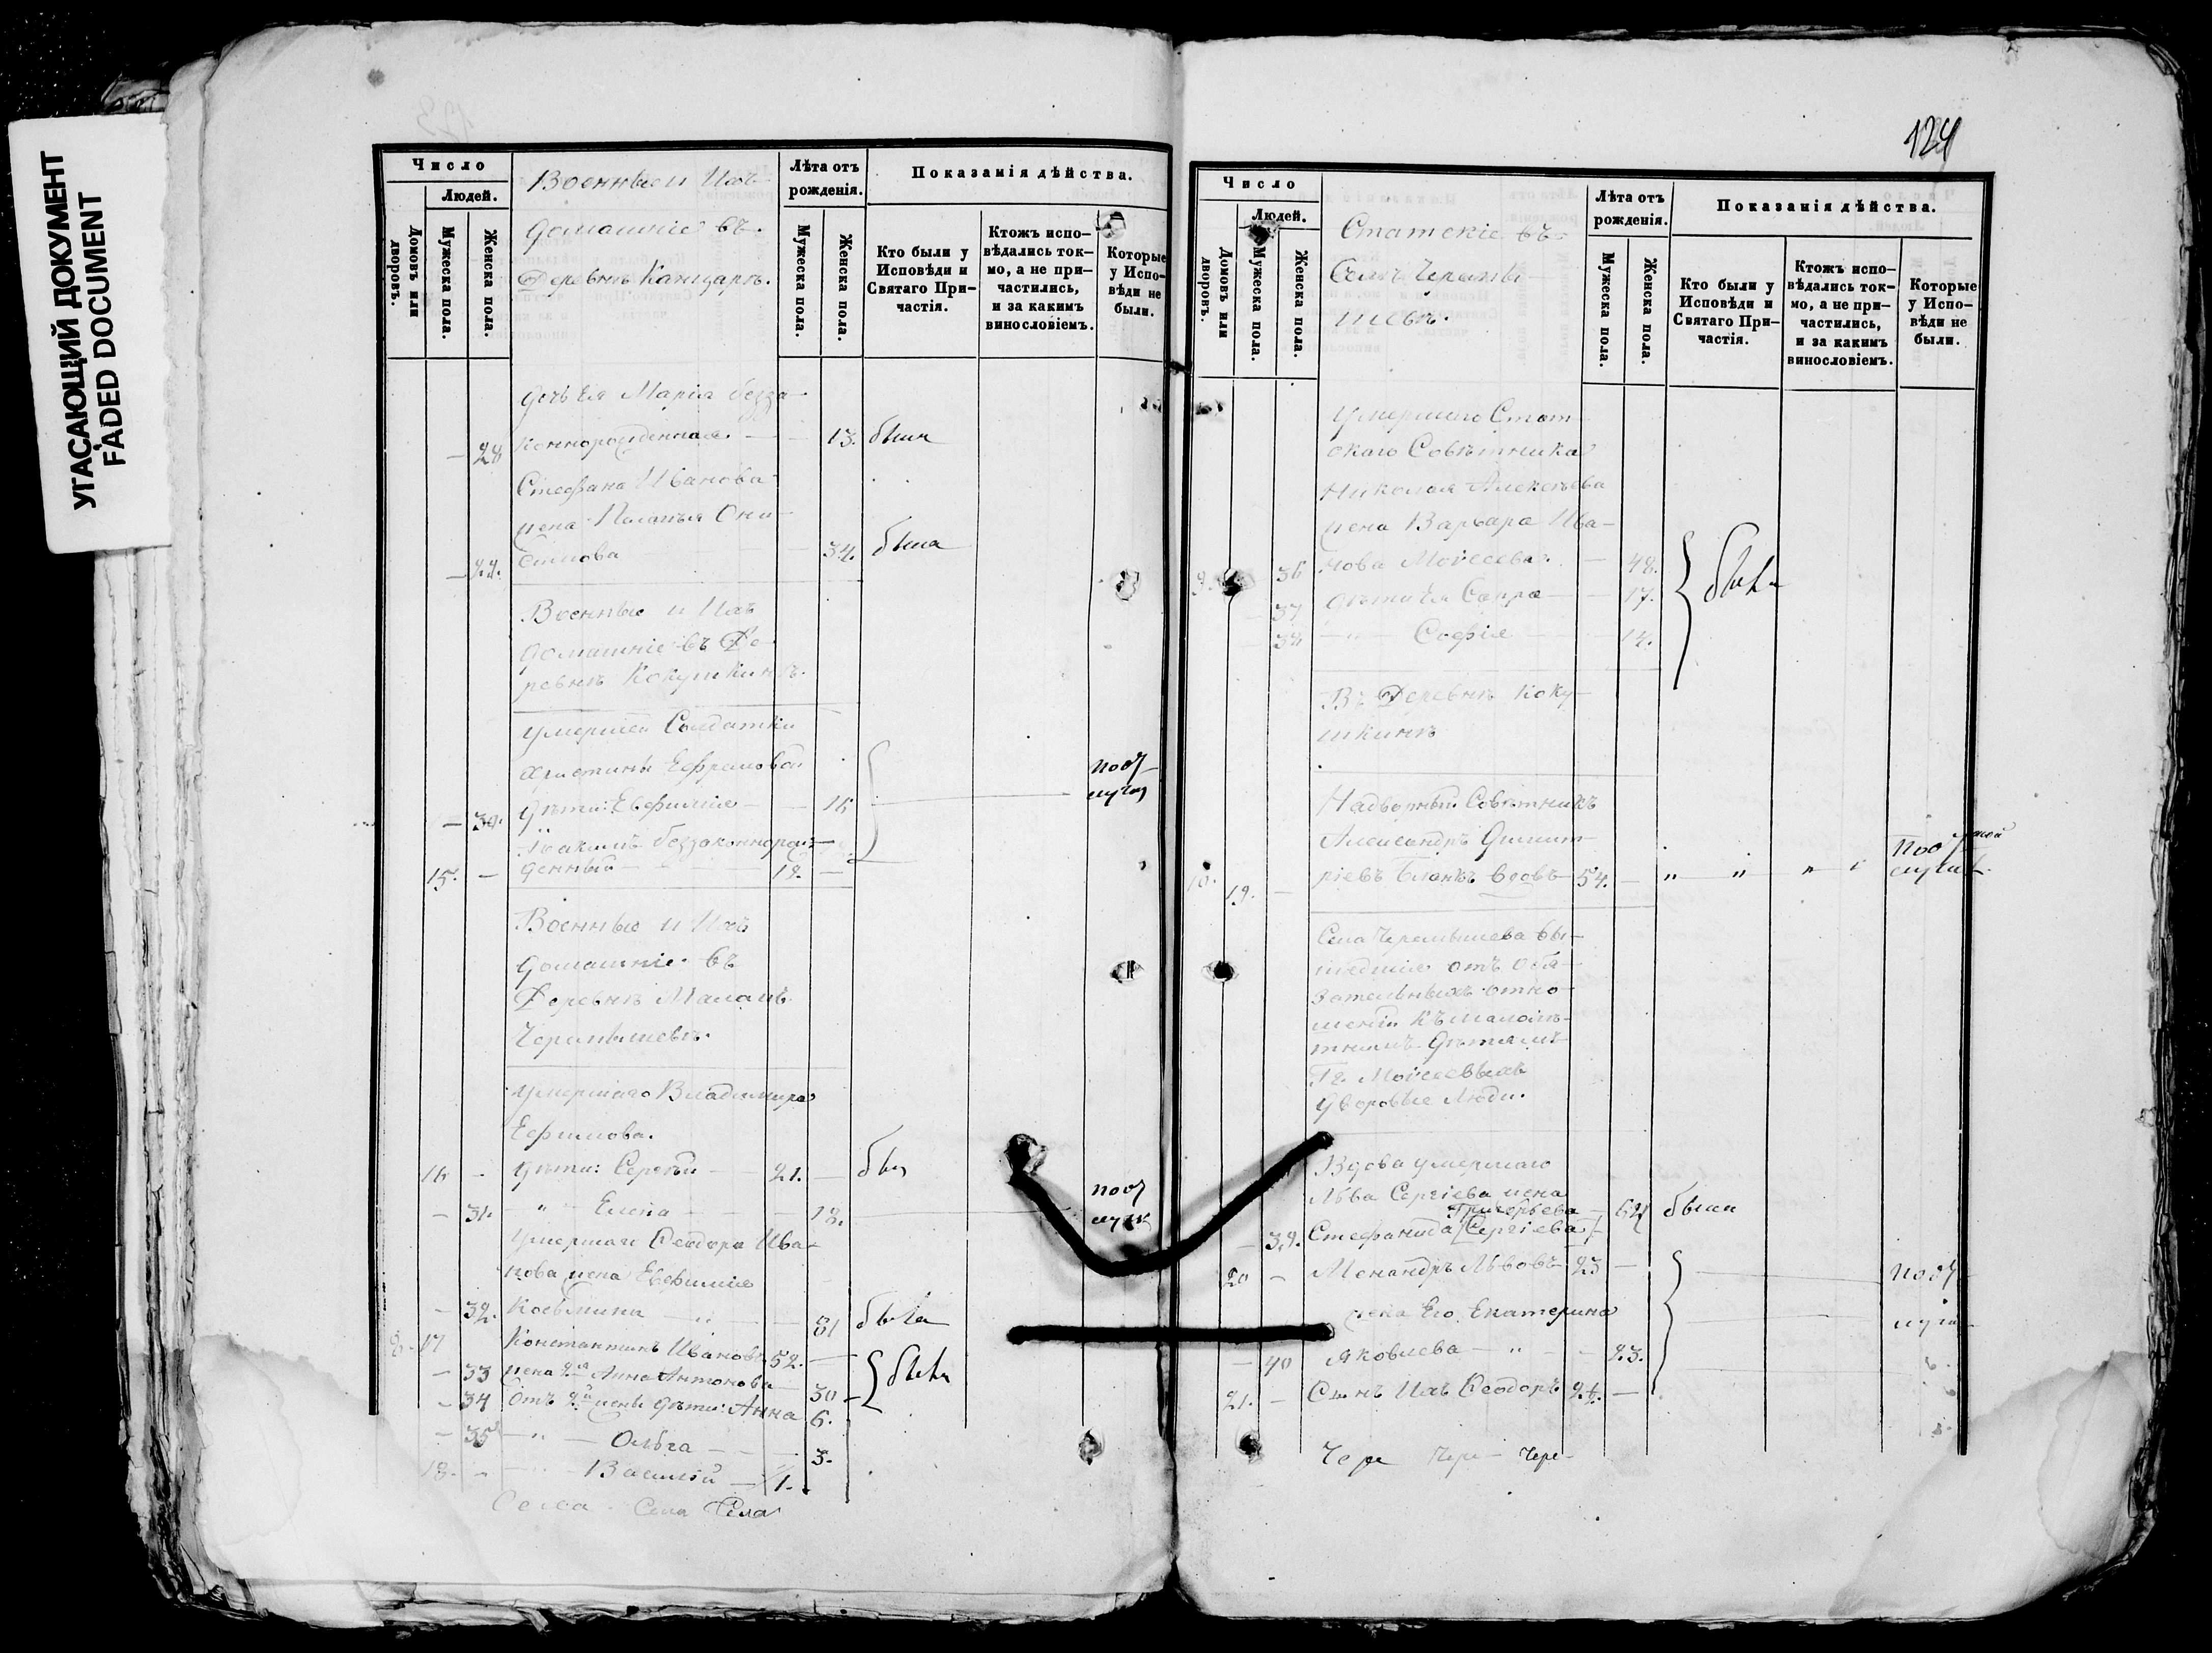 УГАСАЮЩИЙ ДОКУМЕНТ
FADED DOCUMENT
Число
Людей.
Домовъ или дворовъ.
Мужеска пола.
Женска пола.
Военные и Ихъ
домашніе въ
Деревнѣ Канцарѣ.
Лѣта отъ рожденія.
Мужеска пола.
Женска пола.
Показанія дѣйства.
Кто были у Исповѣди и Святаго Причастія.
Ктожъ исповѣдались токмо, а не причастились, и за какимъ винословіемъ.
Которые у Исповѣди не были.
дочь Ея Марія безза-
28 коннорожденная. 13. была
Стефана Иванова
жена Пелагья Они-
29. симова 34. была
Военные и Ихъ
домашніе въ Де-
ревнѣ Кокушкинѣ.
Умершей Солдатки
Христины Ефремовой
30. дѣти: Евфимія 16 по от-
лучк
Іоакимъ беззаконнорож-
15. денный 12.
Военные и Ихъ
домашніе въ
Деревнѣ Маломъ
Черемышевѣ.
Умершаго Владимира
Ефимова.
16 дѣти: Сергѣй 21. был
31. " Елена 18. по от
лучк
Умершаго Ѳеодора Ива-
нова жена Евфимія
32. Косьмина 81 была
8. 17 Константинъ Ивановъ 52.
33 жена 2я Анна Антонова 30 были
34 Отъ 2й жены дѣти: Анна 6.
35 " Ольга 3.
18. " Василій 1.
Села Села Села
124
Число
Людей.
Домовъ или дворовъ.
Мужеска пола.
Женска пола.
Статскіе въ
Селѣ Черемы-
шевѣ.
Лѣта отъ рожденія.
Мужеска пола.
Женска пола.
Показанія дѣйства.
Кто были у Исповѣди и Святаго Причастія.
Ктожъ исповѣдались токмо, а не причастились, и за какимъ винословіемъ.
Которые у Исповѣди не были.
Умершаго Стат-
скаго Совѣтника
Николая Алексѣева
жена Варвара Ива-
9. 36 нова Моисеева. 48. были
37 дѣти Ея Сарра 17.
38 " Софія 14.
Въ Деревнѣ Коку-
шкинѣ
Надворный Совѣтникъ
Александръ Димит-
10. 19. ріевъ Бланкъ вдовъ 54. " " " " По от
лучк
Села Черемышева вы-
шедшіе отъ обя-
зательныхъ отно-
шеній къ малолѣ-
тнимъ дѣтямъ
Гг. Моисеевыхъ
Дворовые Люди.
Вдова умершаго
Льва Сергіева жена
Григорьева 62 была
39. Стефанида [Сергіева]
20 Менандръ Львовъ 25 по от
жена Его Екатерина лучк
40 Яковлева " 23.
21. Сынъ Ихъ Ѳеодоръ
Чере Чере- Чере-